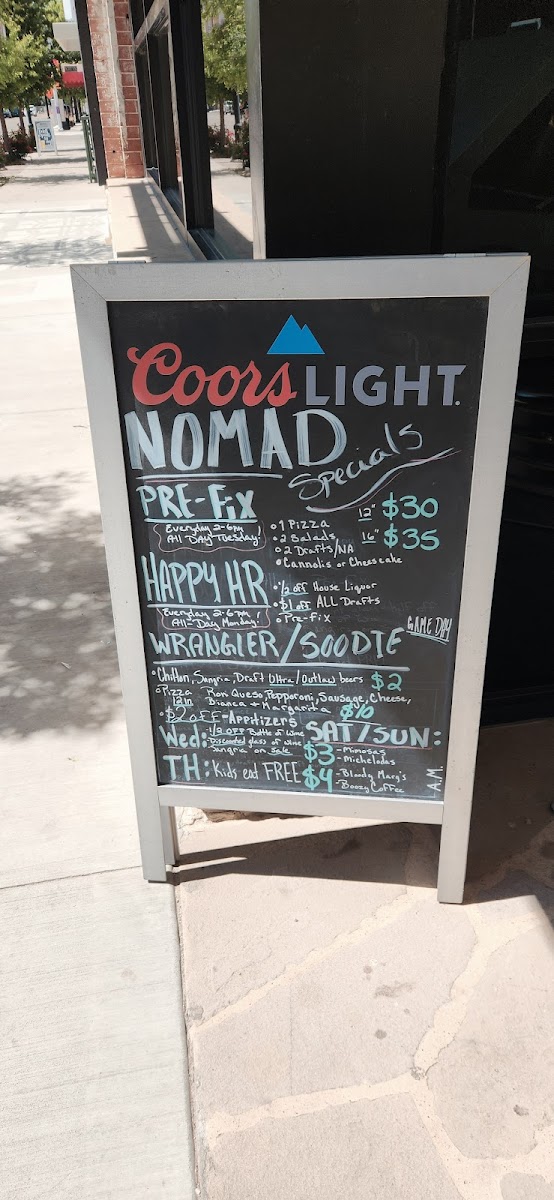 Coors LIGHT.
NOMAD Specials
PRE-FIX
Everyday 2-6pm
All DAY Tuesday!
• 1 Pizza
• 2 Salads
• 2 Drafts/NA
• Cannolis or Cheesecake
12" $30
16" $35
HAPPY HR
Everyday 2-6pm
All-Day Monday!
• 1/2 off House Liquor
• $1 off ALL Drafts
• Pre-fix
WRANGLER/SOODIE GAME DAY
• Chilton, Sangria, Draft Ultra/Outlaw beers $2
• Pizza 12in Ron Queso, Pepperoni, Sausage, Cheese,
Bianca + Margarita $10
• $2 OFF - Appitizers
Wed: 1/2 OFF Bottle of Wine
Discounted glass of wine
Sangria on Sale
TH: Kids eat FREE
SAT/SUN:
$3 - Mimosas
- Micheladas
$4 - Bloody Mary's
- Boozy Coffee
A.M.